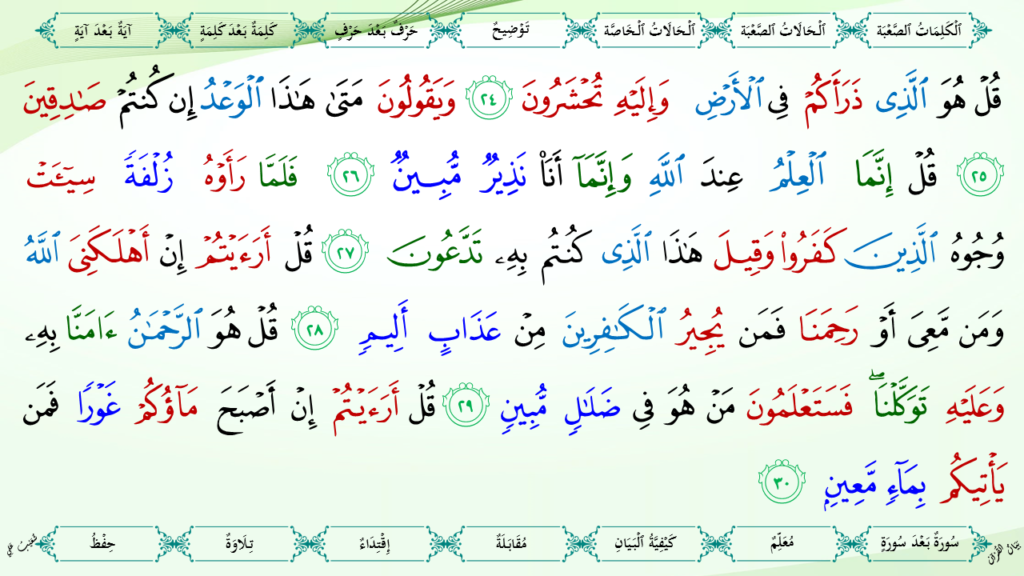 اَلْكَلِمَاتُ الصَّعْبَة اَلْحَالَاتُ الصَّعْبَة اَلْحَالَاتُ الْخَاصَّة تَوْضِيحٌ حَرْفٌ بَعْدَ حَرْفٍ كَلِمَةٌ بَعْدَ كَلِمَةٍ آيَةٌ بَعْدَ آيَةٍ
قُلْ هُوَ ٱلَّذِى ذَرَأَكُمْ فِى ٱلْأَرْضِ وَإِلَيْهِ تُحْشَرُونَ ٢٤ وَيَقُولُونَ مَتَىٰ هَٰذَا ٱلْوَعْدُ إِن كُنتُمْ صَٰدِقِينَ
٢٥ قُلْ إِنَّمَا ٱلْعِلْمُ عِندَ ٱللَّهِ وَإِنَّمَآ أَنَا۠ نَذِيرٌ مُّبِينٌ ٢٦ فَلَمَّا رَأَوْهُ زُلْفَةً سِيٓـَٔتْ
وُجُوهُ ٱلَّذِينَ كَفَرُوا۟ وَقِيلَ هَٰذَا ٱلَّذِى كُنتُم بِهِۦ تَدَّعُونَ ٢٧ قُلْ أَرَءَيْتُمْ إِنْ أَهْلَكَنِىَ ٱللَّهُ
وَمَن مَّعِىَ أَوْ رَحِمَنَا فَمَن يُجِيرُ ٱلْكَٰفِرِينَ مِنْ عَذَابٍ أَلِيمٍ ٢٨ قُلْ هُوَ ٱلرَّحْمَٰنُ ءَامَنَّا بِهِۦ
وَعَلَيْهِ تَوَكَّلْنَا ۖ فَسَتَعْلَمُونَ مَنْ هُوَ فِى ضَلَٰلٍ مُّبِينٍ ٢٩ قُلْ أَرَءَيْتُمْ إِنْ أَصْبَحَ مَآؤُكُمْ غَوْرًا فَمَن
يَأْتِيكُم بِمَآءٍ مَّعِينٍۭ ٣٠
سُورَةٌ بَعْدَ سُورَةٍ مُعَلِّمٌ كَيْفِيَّةُ الْبَيَانِ مُقَابَلَةٌ إِقْتِدَاءٌ تِلَاوَةٌ حِفْظٌ
بَيَانُ الْقُرْآن